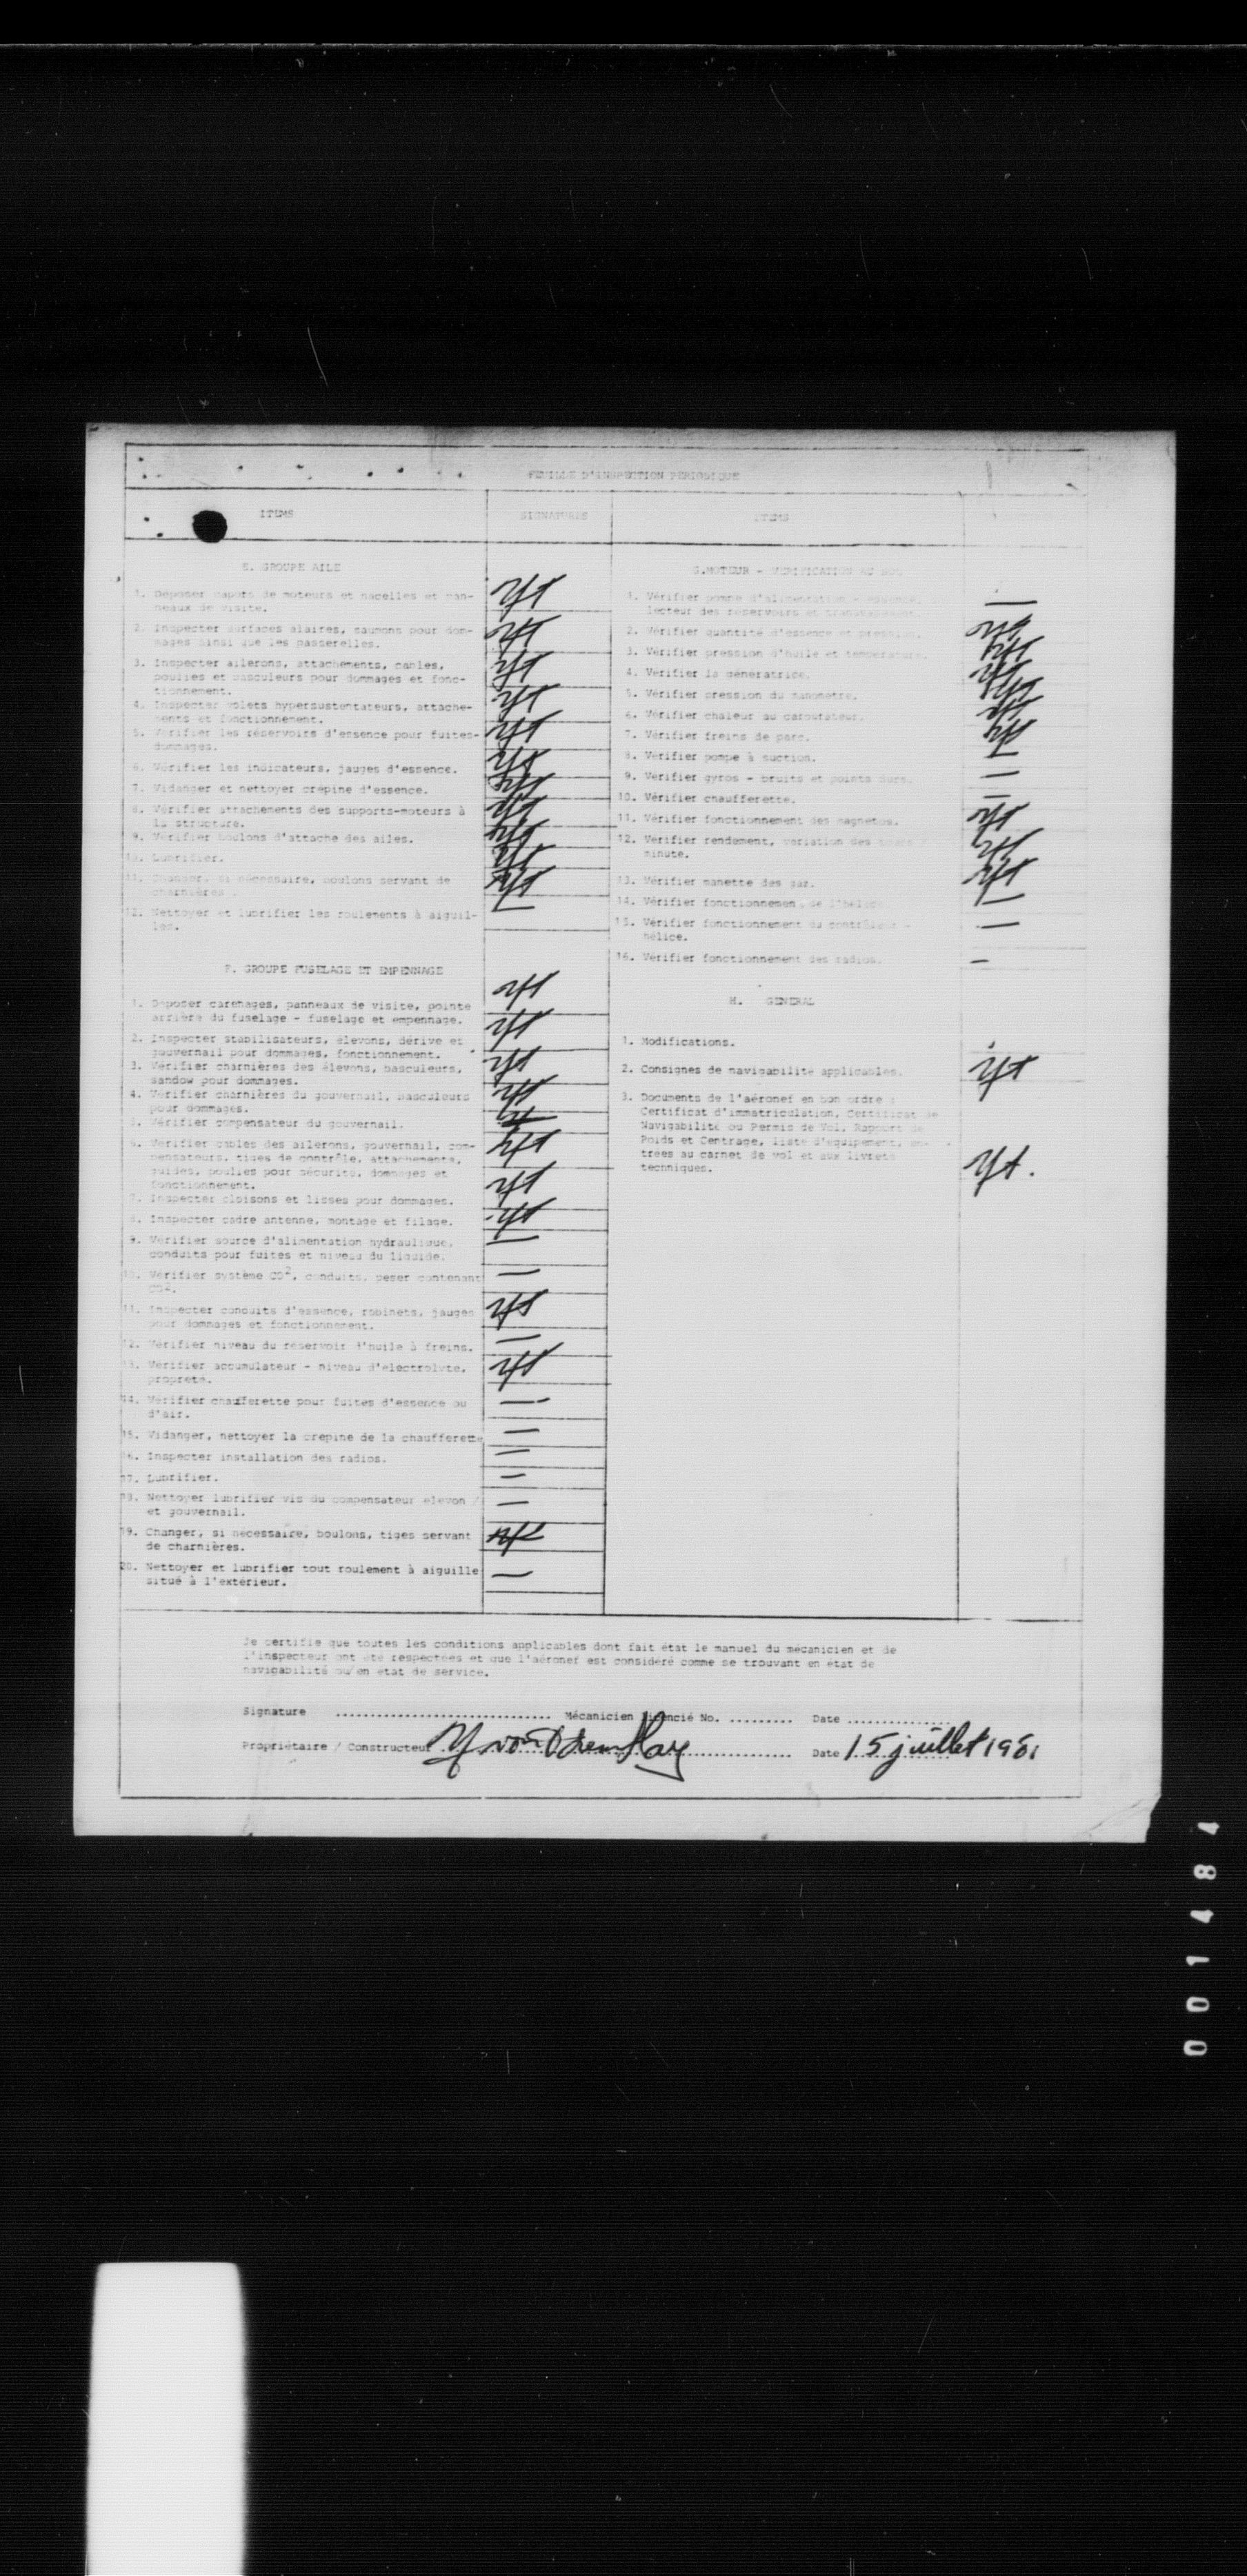 FEUILLE D'INSPECTION PERIODIQUE
ITEMS
SIGNATURES
ITEMS
E. GROUPE AILE
1. Déposer capots de moteurs et nacelles et pan-
neaux de visite.
yt
2. Inspecter surfaces alaires, saumons pour dom-
mages ainsi que les passerelles.
yt
3. Inspecter ailerons, attachements, cables,
poulies et basculeurs pour dommages et fonc-
tionnement.
yt
4. Inspecter volets hypersustentateurs, attache-
ments et fonctionnement.
yt
5. Vérifier les réservoirs d'essence pour fuites-
dommages.
yt
6. Vérifier les indicateurs, jauges d'essence.
yt
7. Vidanger et nettoyer crépine d'essence.
yt
8. Vérifier attachements des supports-moteurs à
la structure.
yt
9. Vérifier boulons d'attache des ailes.
yt
10. Lubrifier.
yt
11. Changer, si nécessaire, boulons servant de
charnières.
yt
12. Nettoyer et lubrifier les roulements à aiguil-
les.
—
F. GROUPE FUSELAGE ET EMPENNAGE
yt
1. Déposer carénages, panneaux de visite, pointe
arrière du fuselage - fuselage et empennage.
yt
2. Inspecter stabilisateurs, élevons, dérive et
gouvernail pour dommages, fonctionnement.
yt
3. Vérifier charnières des élevons, basculeurs,
sandow pour dommages.
4. Vérifier charnières du gouvernail, basculeurs
pour dommages.
yt
5. Vérifier compensateur du gouvernail.
6. Vérifier cables des ailerons, gouvernail, com-
pensateurs, tiges de contrôle, attachements,
guides, poulies pour sécurité, dommages et
fonctionnement.
yt
7. Inspecter cloisons et lisses pour dommages.
yt
8. Inspecter cadre antenne, montage et filage.
yt
9. Vérifier source d'alimentation hydraulique,
conduits pour fuites et niveau du liquide.
—
10. Vérifier système CO2, conduits, peser contenant
CO2.
—
11. Inspecter conduits d'essence, robinets, jauges
pour dommages et fonctionnement.
yt
12. Vérifier niveau du réservoir d'huile à freins.
—
13. Vérifier accumulateur - niveau d'électrolyte,
propreté.
yt
14. Vérifier chaufferette pour fuites d'essence ou
d'air.
—
15. Vidanger, nettoyer la crépine de la chaufferette
—
16. Inspecter installation des radios.
—
17. Lubrifier.
—
18. Nettoyer lubrifier vis du compensateur élevon /
et gouvernail.
—
19. Changer, si nécessaire, boulons, tiges servant
de charnières.
yt
20. Nettoyer et lubrifier tout roulement à aiguille
situé à l'extérieur.
—
G. MOTEUR - VERIFICATION AU SOL
1. Vérifier pompe d'alimentation - essence,
lecteur des réservoirs et
—
2. Vérifier quantité d'essence et pression.
yt
3. Vérifier pression d'huile et température.
yt
4. Vérifier la génératrice.
yt
5. Vérifier pression du manomètre.
yt
6. Vérifier chaleur au carburateur.
yt
7. Vérifier freins de parc.
yt
8. Vérifier pompe à suction.
—
9. Vérifier gyros - bruits et points durs.
—
10. Vérifier chaufferette.
—
11. Vérifier fonctionnement des magnetos.
yt
12. Vérifier rendement, variation des tours /
minute.
yt
13. Vérifier manette des gaz.
yt
14. Vérifier fonctionnement de l'hélice.
—
15. Vérifier fonctionnement du contrôleur -
hélice.
—
16. Vérifier fonctionnement des radios.
—
H. GENERAL
1. Modifications.
2. Consignes de navigabilité applicables.
yt
3. Documents de l'aéronef en bon ordre :
Certificat d'immatriculation, Certificat de
Navigabilité ou Permis de Vol, Rapport de
Poids et Centrage, liste d'équipement, en-
trées au carnet de vol et aux livrets
techniques.
yt.
Je certifie que toutes les conditions applicables dont fait état le manuel du mécanicien et de
l'inspecteur ont été respectées et que l'aéronef est considéré comme se trouvant en état de
navigabilité ou/en état de service.
Signature .......... Mécanicien licencié No. .......... Date ..........
Propriétaire / Constructeur Yvon Tremblay Date 15 juillet 1981
001484